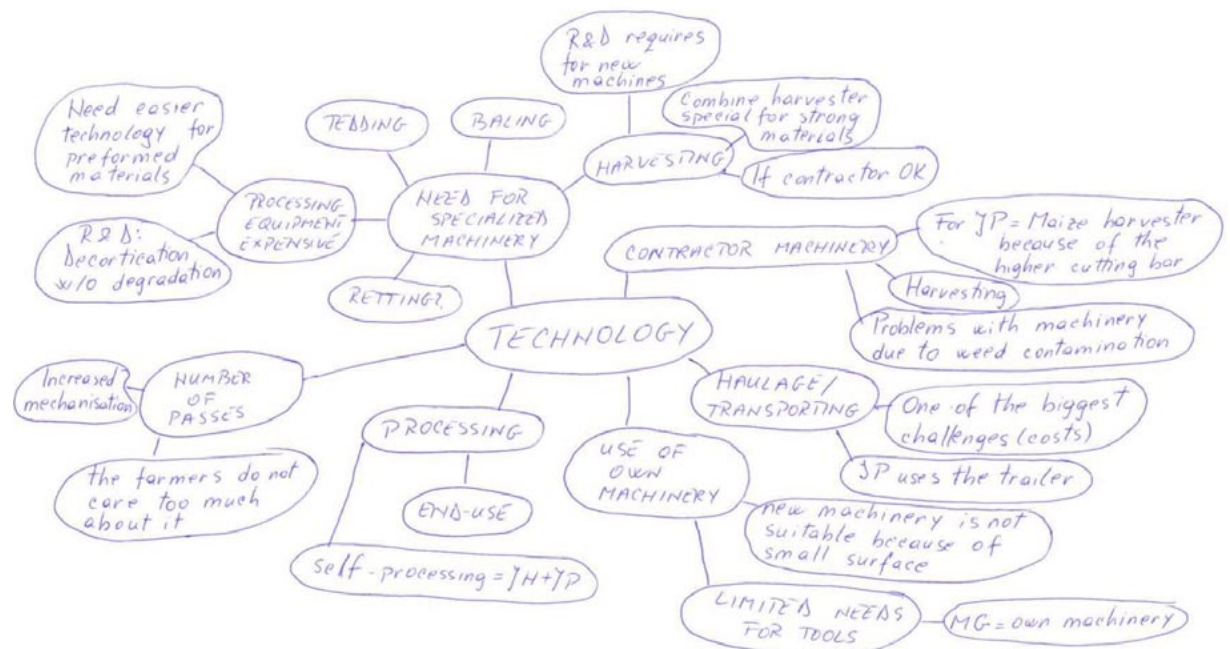 R&D requires
for new
machines
Need easier
technology for
preformed
materials
TEDDING
BALING
Combine harvester
special for strong
materials
HARVESTING
If contractor OK
PROCESSING
EQUIPMENT
EXPENSIVE
NEED FOR
SPECIALIZED
MACHINERY
R&D:
Decortication
w/o degradation
RETTING?
CONTRACTOR MACHINERY
For JP = Maize harvester
because of the
higher cutting bar
Harvesting
Problems with machinery
due to weed contamination
TECHNOLOGY
Increased
mechanisation
NUMBER
OF
PASSES
the farmers do not
care too much
about it
PROCESSING
END-USE
self-processing = JH+JP
HAULAGE/
TRANSPORTING
One of the biggest
challenges (costs)
JP uses the trailer
USE OF
OWN
MACHINERY
new machinery is not
suitable because of
small surface
LIMITED NEEDS
FOR TOOLS
MG = own machinery